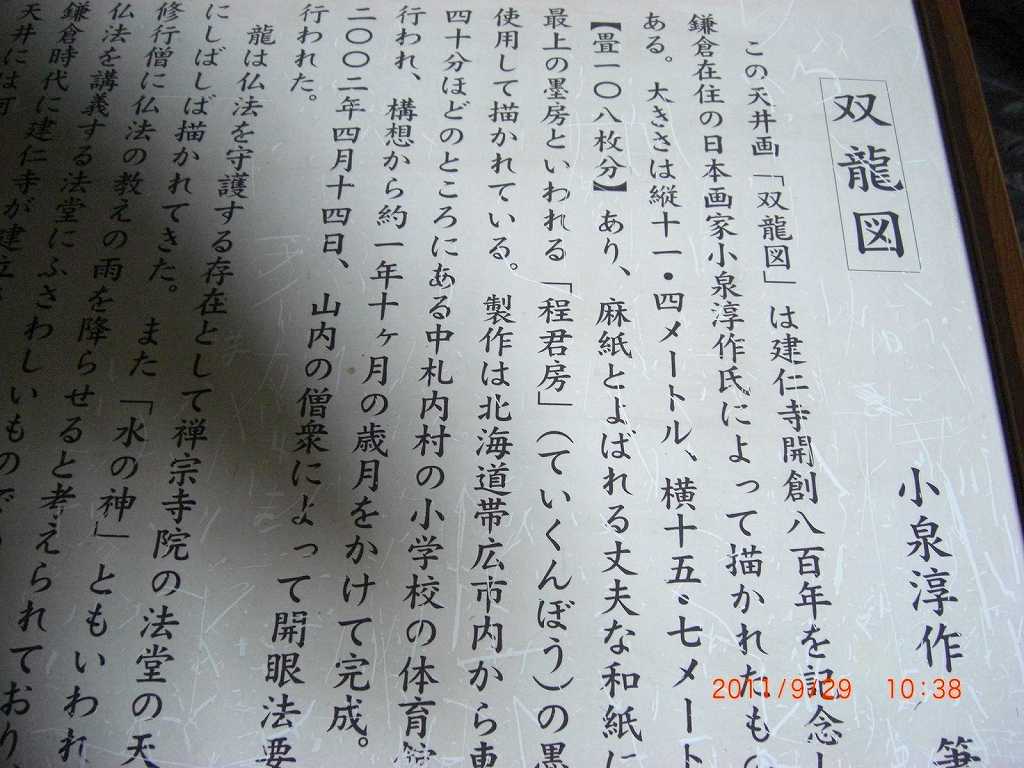 双龍図
小泉淳作 筆
この天井画「双龍図」は建仁寺開創八百年を記念し
鎌倉在住の日本画家小泉淳作氏によって描かれたもの
ある。大きさは縦十一・四メートル、横十五・七メート
【畳一〇八枚分】あり、麻紙とよばれる丈夫な和紙に
最上の墨房といわれる「程君房」(ていくんぼう)の墨
使用して描かれている。製作は北海道帯広市内から車
四十分ほどのところにある中札内村の小学校の体育館
行われ、構想から約一年十ヶ月の歳月をかけて完成。
二〇〇二年四月十四日、山内の僧衆によって開眼法要
行われた。
龍は仏法を守護する存在として禅宗寺院の法堂の天
にしばしば描かれてきた。また「水の神」ともいわれ
修行僧に仏法の教えの雨を降らせると考えられており
仏法を講義する法堂にふさわしいもので
鎌倉時代に建仁寺が建立
天井には何
2011/9/29 10:38